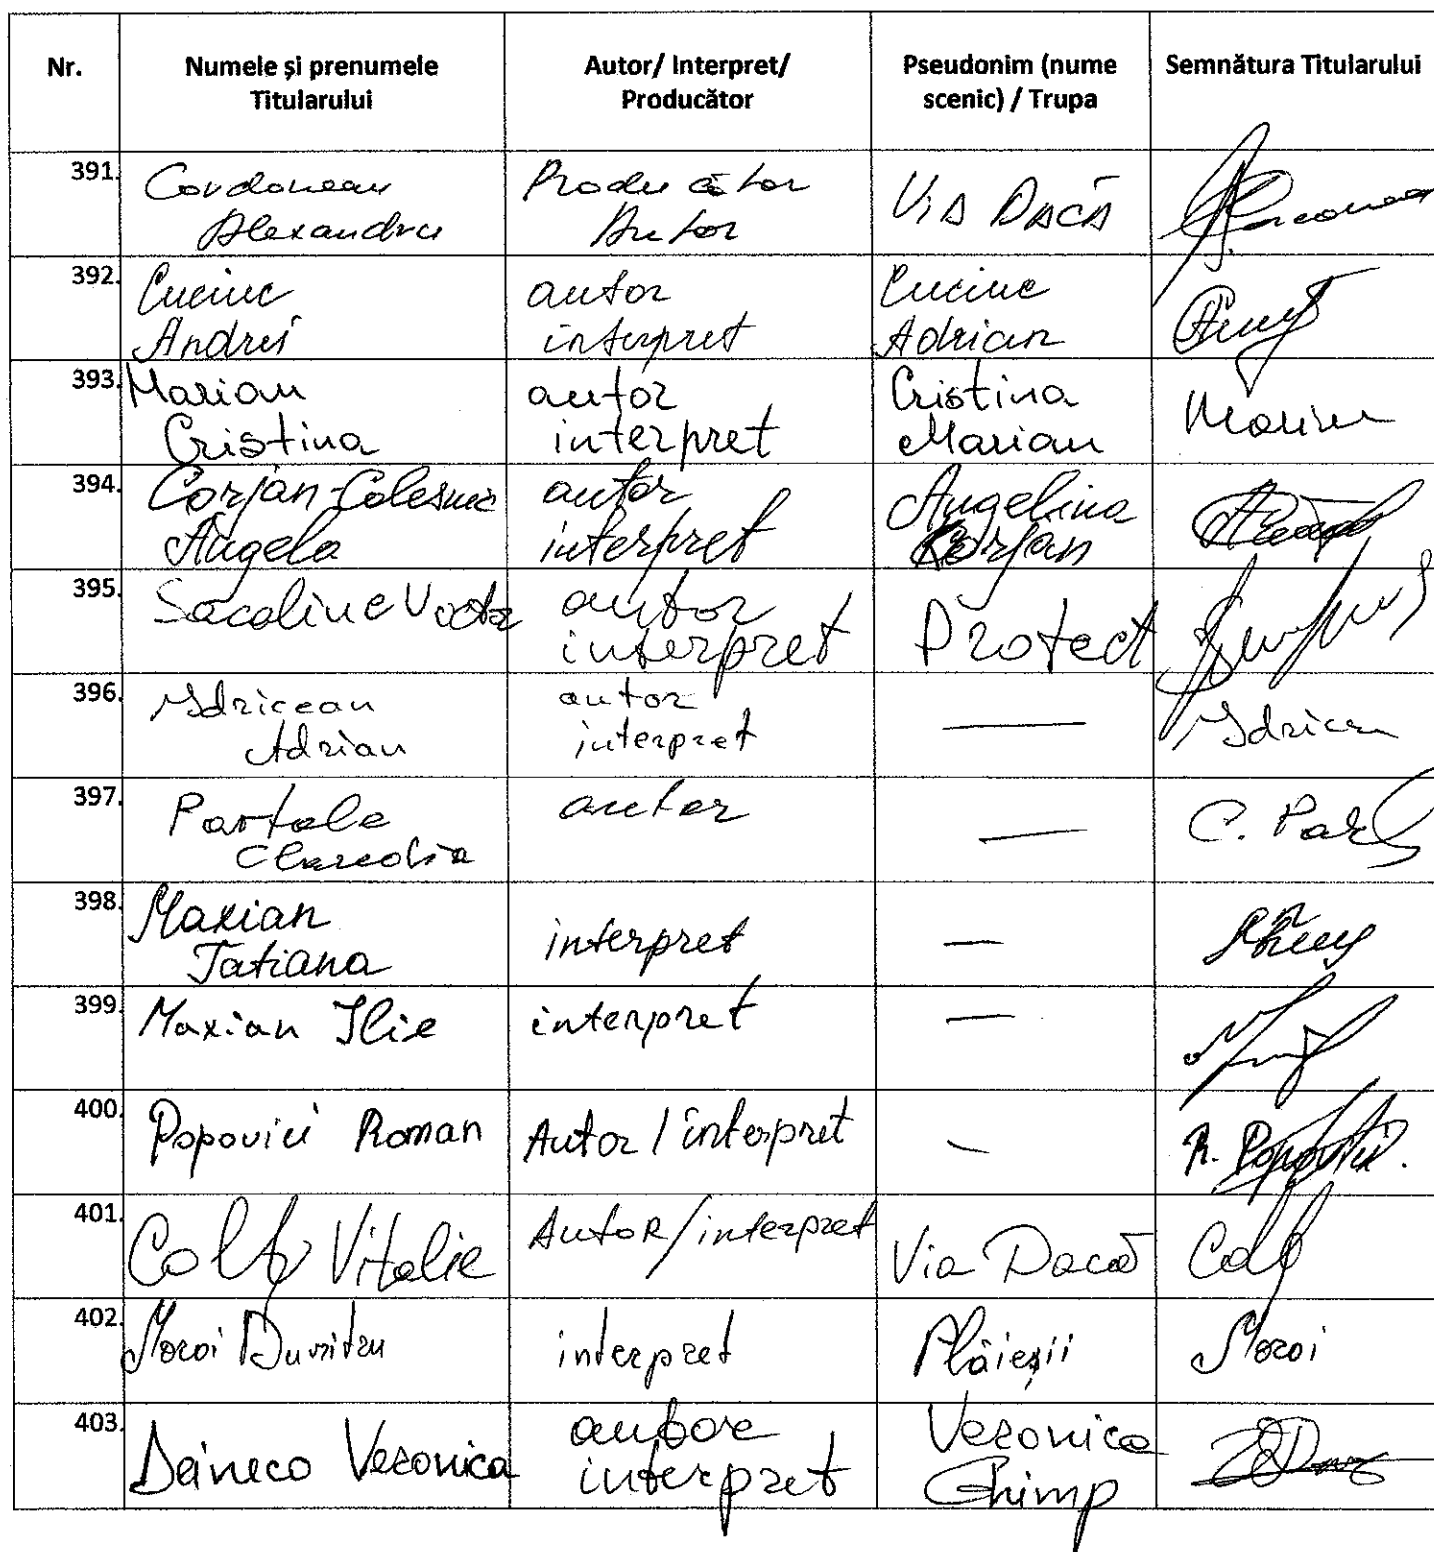 Nr. Numele și prenumele Titularului Autor/ Interpret/ Producător Pseudonim (nume scenic) / Trupa Semnătura Titularului
391. Cordonean Alexandru Producător Autor Via Dacă
392. Cuciuc Andrei autor interpret Cuciuc Adrian
393. Marian Cristina autor interpret Cristina Marian Marian
394. Corjan-Colesnic Angela autor interpret Angelina Corjan
395. Sacaliuc Victor autor interpret Protect
396. Idricean Adrian autor interpret — Idricean
397. Partole Claudia autor —
398. Maxian Tatiana interpret —
399. Maxian Ilie interpret —
400. Popovici Roman Autor / interpret — R. Popovici.
401. Colț Vitalie Autor/interpret Via Dacă
402. Moroi Dumitru interpret Plăieșii Moroi
403. Deineco Veronica autore interpret Veronica Ghimp